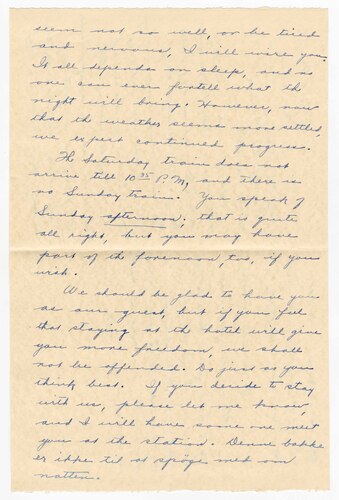 seem not so well, or be tired
and nervous, I will wire you.
It all depends on sleep, and no
one can ever foretell what the
night will bring. However, now
that the weather seems more settled,
we expect continued progress.
The Saturday train does not
arrive till 10 35 P.M, and there is
no Sunday train. You speak of
Sunday afternoon; that is quite
all right, but you may have
part of the forenoon, too, if you
wish.
We should be glad to have you
as our guest, but if you feel
that staying at the hotel will give
you more freedom, we shall
not be offended. Do just as you
think best. If you decide to stay
with us, please let me know,
and I will have some one meet
you at the station. Denne bakke
er ikke til at spøge med om
natten.